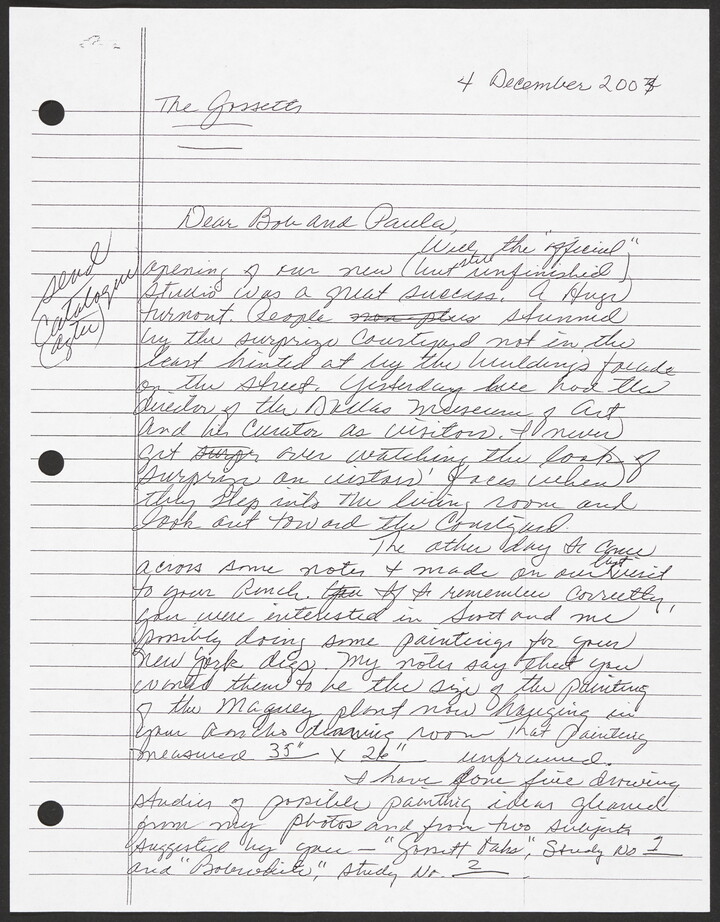 4 December 2003
The Gossetts
Dear Bob and Paula,
Well, the "official"
opening of our new (but still unfinished)
studio was a great success. A Huge
turnout. People stunned
by the surprize Courtyard not in the
least hinted at by the building's facade
on the street. Yesterday we had the
director of the Dallas Museum of Art
and his Curator as visitors. I never
get over watching the look of
surprise on visitors' faces when
they step into the living room and
look out toward the Courtyard.
The other day I came
across some notes I made on our last visit
to your Ranch. If I remember correctly,
you were interested in Scott and me
possibly doing some paintings for your
New York digs. My notes say that you
wanted them to be the size of the painting
of the Maguey plant now hanging in
your rancho drawing room That painting
measured 35" x 26" unframed.
I have done five drawing
studies of possible painting ideas gleaned
from my photos and from two subjects
suggested by you — "Gossett Oaks", Study No 1
and "Bobwhite", Study No. 2.
send
Catalogue
(Aztec)